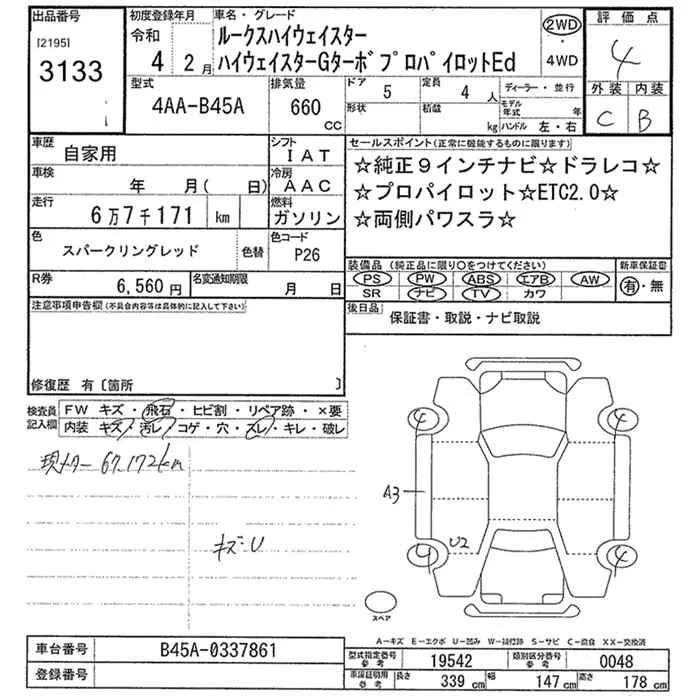 出品番号
[21951]
3133
初度登録年月
令和
4 2月
車名・グレード
ルークスハイウェイスター
ハイウェイスターGターボプロパイロットEd
2WD
・
4WD
評価点
4
外装 内装
C B
型式
4AA-B45A
排気量
660
CC
ドア
5
定員
4 人
形状
積載
kg
ディーラー・並行
モデル年式 年
ハンドル 左・右
車歴
自家用
シフト
IAT
車検
年 月( 日)
冷房
AAC
走行
6万7千171 km
燃料
ガソリン
色
スパークリングレッド
色替
色コード
P26
R券
6,560円
名変通知期限
月 日
セールスポイント(正常に機能するものに限ります)
☆純正9インチナビ☆ドラレコ☆
☆プロパイロット☆ETC2.0☆
☆両側パワスラ☆
装備品(純正品に限り〇をつけてください)
新車保証書
PS PW ABS エアB AW
SR ナビ TV カワ
有・無
後日品
保証書・取説・ナビ取説
注意事項申告欄(不具合内容等は具体的に記入して下さい)
修復歴 有〔箇所 〕
検査員記入欄
FW キズ・飛石・ヒビ割・リペア跡・×要
内装 キズ・汚レ・コゲ・穴・スレ・キレ・破レ
現メーター 67,172km
キズU
4
4
A3
4
U2
4
スペア
A-キズ E-エクボ U-凹み W-補修跡 S-サビ C-腐食 XX-交換済
車台番号
B45A-0337861
登録番号
型式指定番号 参考
19542
類別区分番号 参考
0048
車検証明用 参考
長さ 339 cm
幅 147 cm
高さ 178 cm